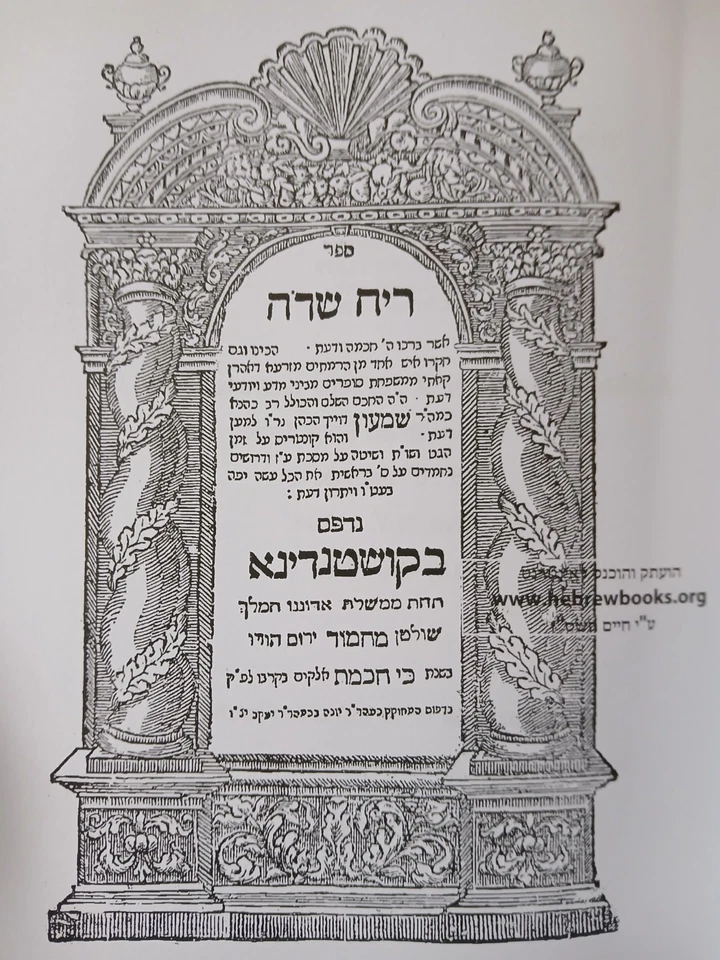 ספר
ריח שדה
אשר ברכו ה' חכמה ודעת · הכינו וגם
חקרו איש אחד מן הרמתים מזרעא דאהרן
קאתי ממשפחת סופרים מביני מדע ויודעי
דעת · ה"ה החכם השלם והכולל רב כהנא
כמה"ר שמעון דוייך הכהן נר"ו למען
דעת · והוא קונטריס על זמן
הגט ושו"ת ושיטה על מסכת ע"ז ודרושים
נחמדים על ס' בראשית את הכל עשה יפה
בעטו ויתרון דעת :
נדפס
בקושטנדינא
תחת ממשלת אדוננו המלך
שולטן מחמוד ירום הודו
בשנת כי חכמת אלקים בקרבו לפ"ק
בדפוס המחוקק כמהר"ר יונה בכמהר"ר יעקב יצ"ו
הועתק והוכנס לאינטרנט
www.hebrewbooks.org
ע"י חיים תשס"ו